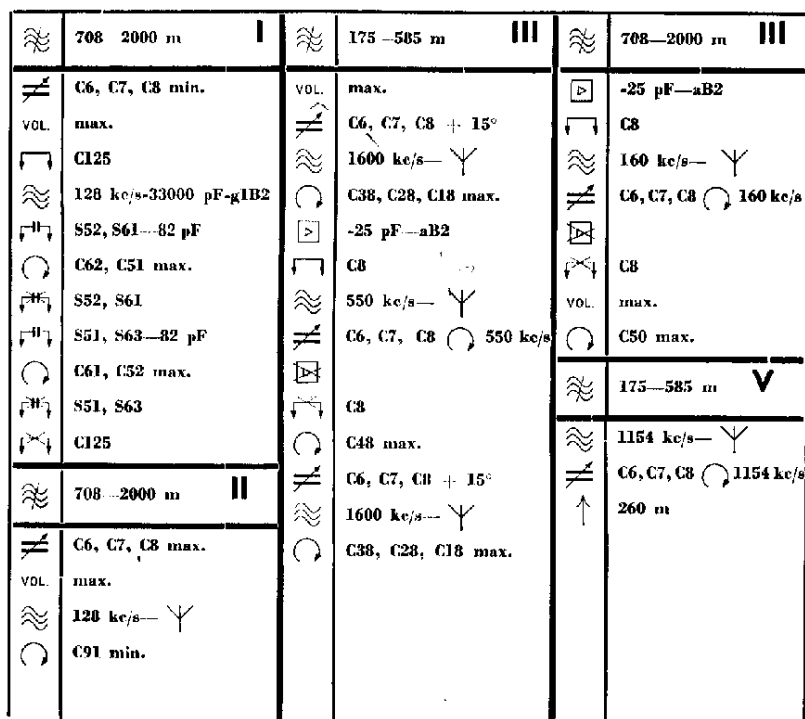 708—2000 m I
C6, C7, C8 min.
VOL. max.
C125
128 kc/s-33000 pF-g1B2
S52, S61—82 pF
C62, C51 max.
S52, S61
S51, S63—82 pF
C61, C52 max.
S51, S63
C125
708—2000 m II
C6, C7, C8 max.
VOL. max.
128 kc/s—
C91 min.
175—585 m III
VOL. max.
C6, C7, C8 + 15°
1600 kc/s—
C38, C28, C18 max.
-25 pF—aB2
C8
550 kc/s—
C6, C7, C8 550 kc/s
C8
C48 max.
C6, C7, C8 + 15°
1600 kc/s—
C38, C28, C18 max.
708—2000 m III
-25 pF—aB2
C8
160 kc/s—
C6, C7, C8 160 kc/s
C8
VOL. max.
C50 max.
175—585 m V
1154 kc/s—
C6, C7, C8 1154 kc/s
260 m